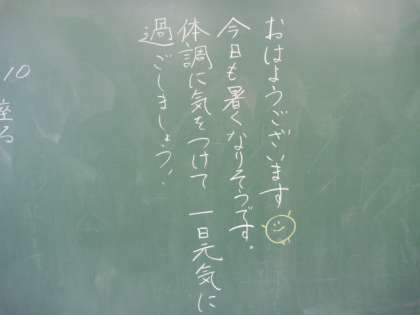 おはようございます
今日も暑くなりそうです。
体調に気をつけて 一日元気に
過ごしましょう!
10
座る